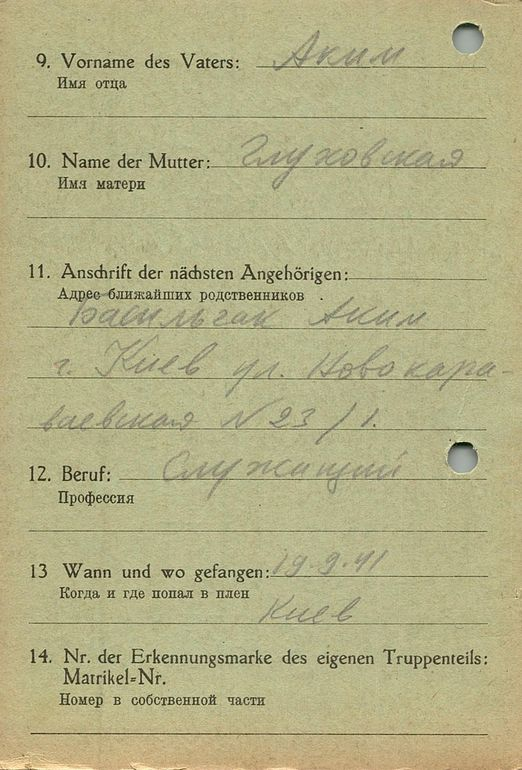 9. Vorname des Vaters: Аким
Имя отца
10. Name der Mutter: Глуховская
Имя матери
11. Anschrift der nächsten Angehörigen:
Адрес ближайших родственников
Аким
г. Киев ул. Новокара-
ваевская N 23/1.
12. Beruf: Служищий
Профессия
13 Wann und wo gefangen: 19.9.41
Когда и где попал в плен
Киев
14. Nr. der Erkennungsmarke des eigenen Truppenteils:
Matrikel-Nr.
Номер в собственной части